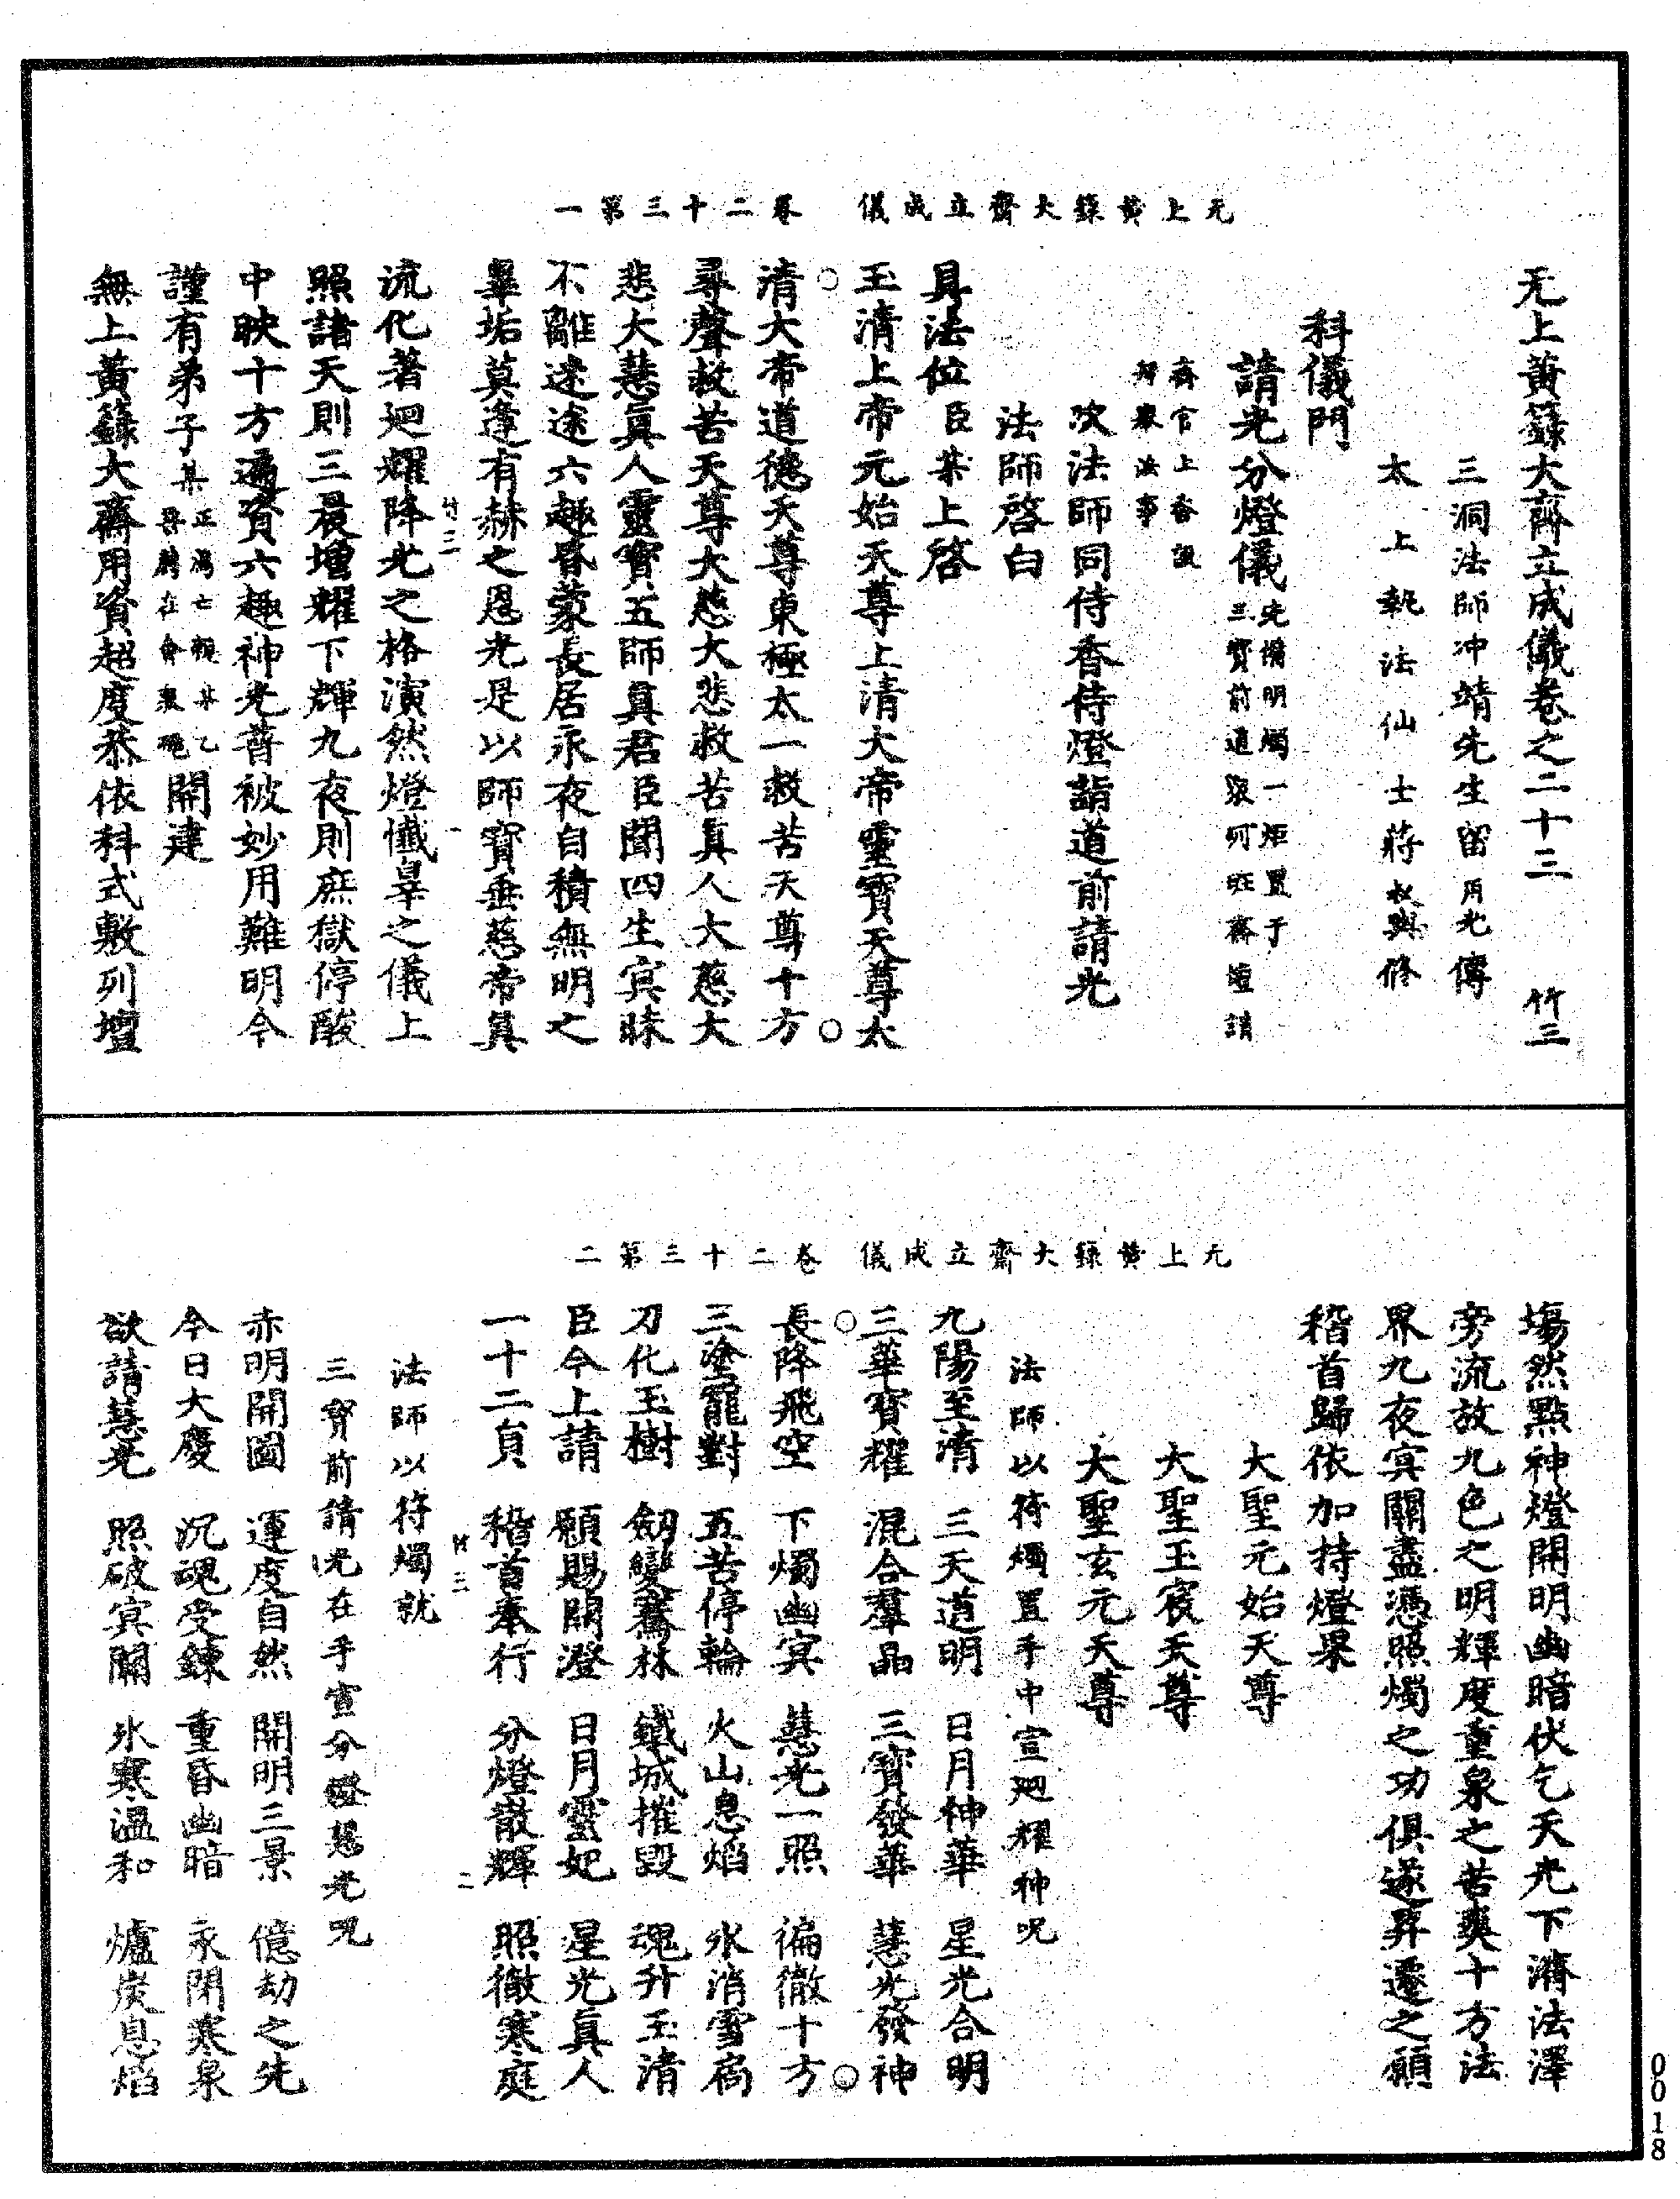 元上黃籙大齋立成儀　卷二十三第一
无上黃籙大齋立成儀卷之二十三　竹三
三洞法師冲靖先生留用光傳
太上執法仙士蔣叔輿修
科儀門
請光分燈儀先備明燭一炬置于三寶前道衆何旺齋壇請
齋官上香設拜衆法事
次法師同侍香侍燈詣道前請光
法師啓白
具法位臣某上啓
玉清上帝元始天尊上清大帝靈寶天尊太
清大帝道德天尊東極太一救苦天尊十方
尋聲救苦天尊大慈大悲救苦眞人大慈大
悲大慧眞人靈寶五師眞君臣聞四生㝠昧
不離迷途六趣昏蒙長居永夜自積無明之
辠垢莫逢有赫之恩光是以師寶垂慈帝眞
流化著廻耀降光之格演然燈懺辠之儀上
照諸天則三晨增耀下輝九夜則庶獄停酸
中映十方遍資六趣神光普被妙用難明今
謹有弟子某正薦亡靈某乙啓薦在會衆魂開建
無上黃籙大齋用資超度恭依科式敷列壇
元上黃籙大齋立成儀　卷二十三第二
場然點神燈開明幽暗伏乞天光下濟法澤
旁流放九色之明輝度重泉之苦爽十方法
界九夜㝠關盡憑照燭之功俱遂昇遷之願
稽首歸依加持燈果
大聖元始天尊
大聖玉宸天尊
大聖玄元天尊
法師以符燭置手中宣廻耀神呪
九陽至清　三天道明　日月神華　星光合明
三華寶耀　混合羣晶　三寶發華　慧光發神
長降飛空　下燭幽㝠　慧光一照　徧徹十方
三塗罷對　五苦停輪　火山息焰　氷消雪扃
刀化玉樹　劒變騫林　鐵城摧毀　魂升玉清
臣今上請　願賜開澄　日月靈妃　星光眞人
一十二眞　稽首奉行　分燈散輝　照徹寒庭
竹三　二
法師以符燭就
三寶前請光在手宣分燈慧光呪
赤明開圖　運度自然　開明三景　億劫之先
今日大慶　沉魂受鍊　重昏幽暗　永閉寒泉
欲請慧光　照破㝠關　氷寒溫和　爐炭息焰
0018